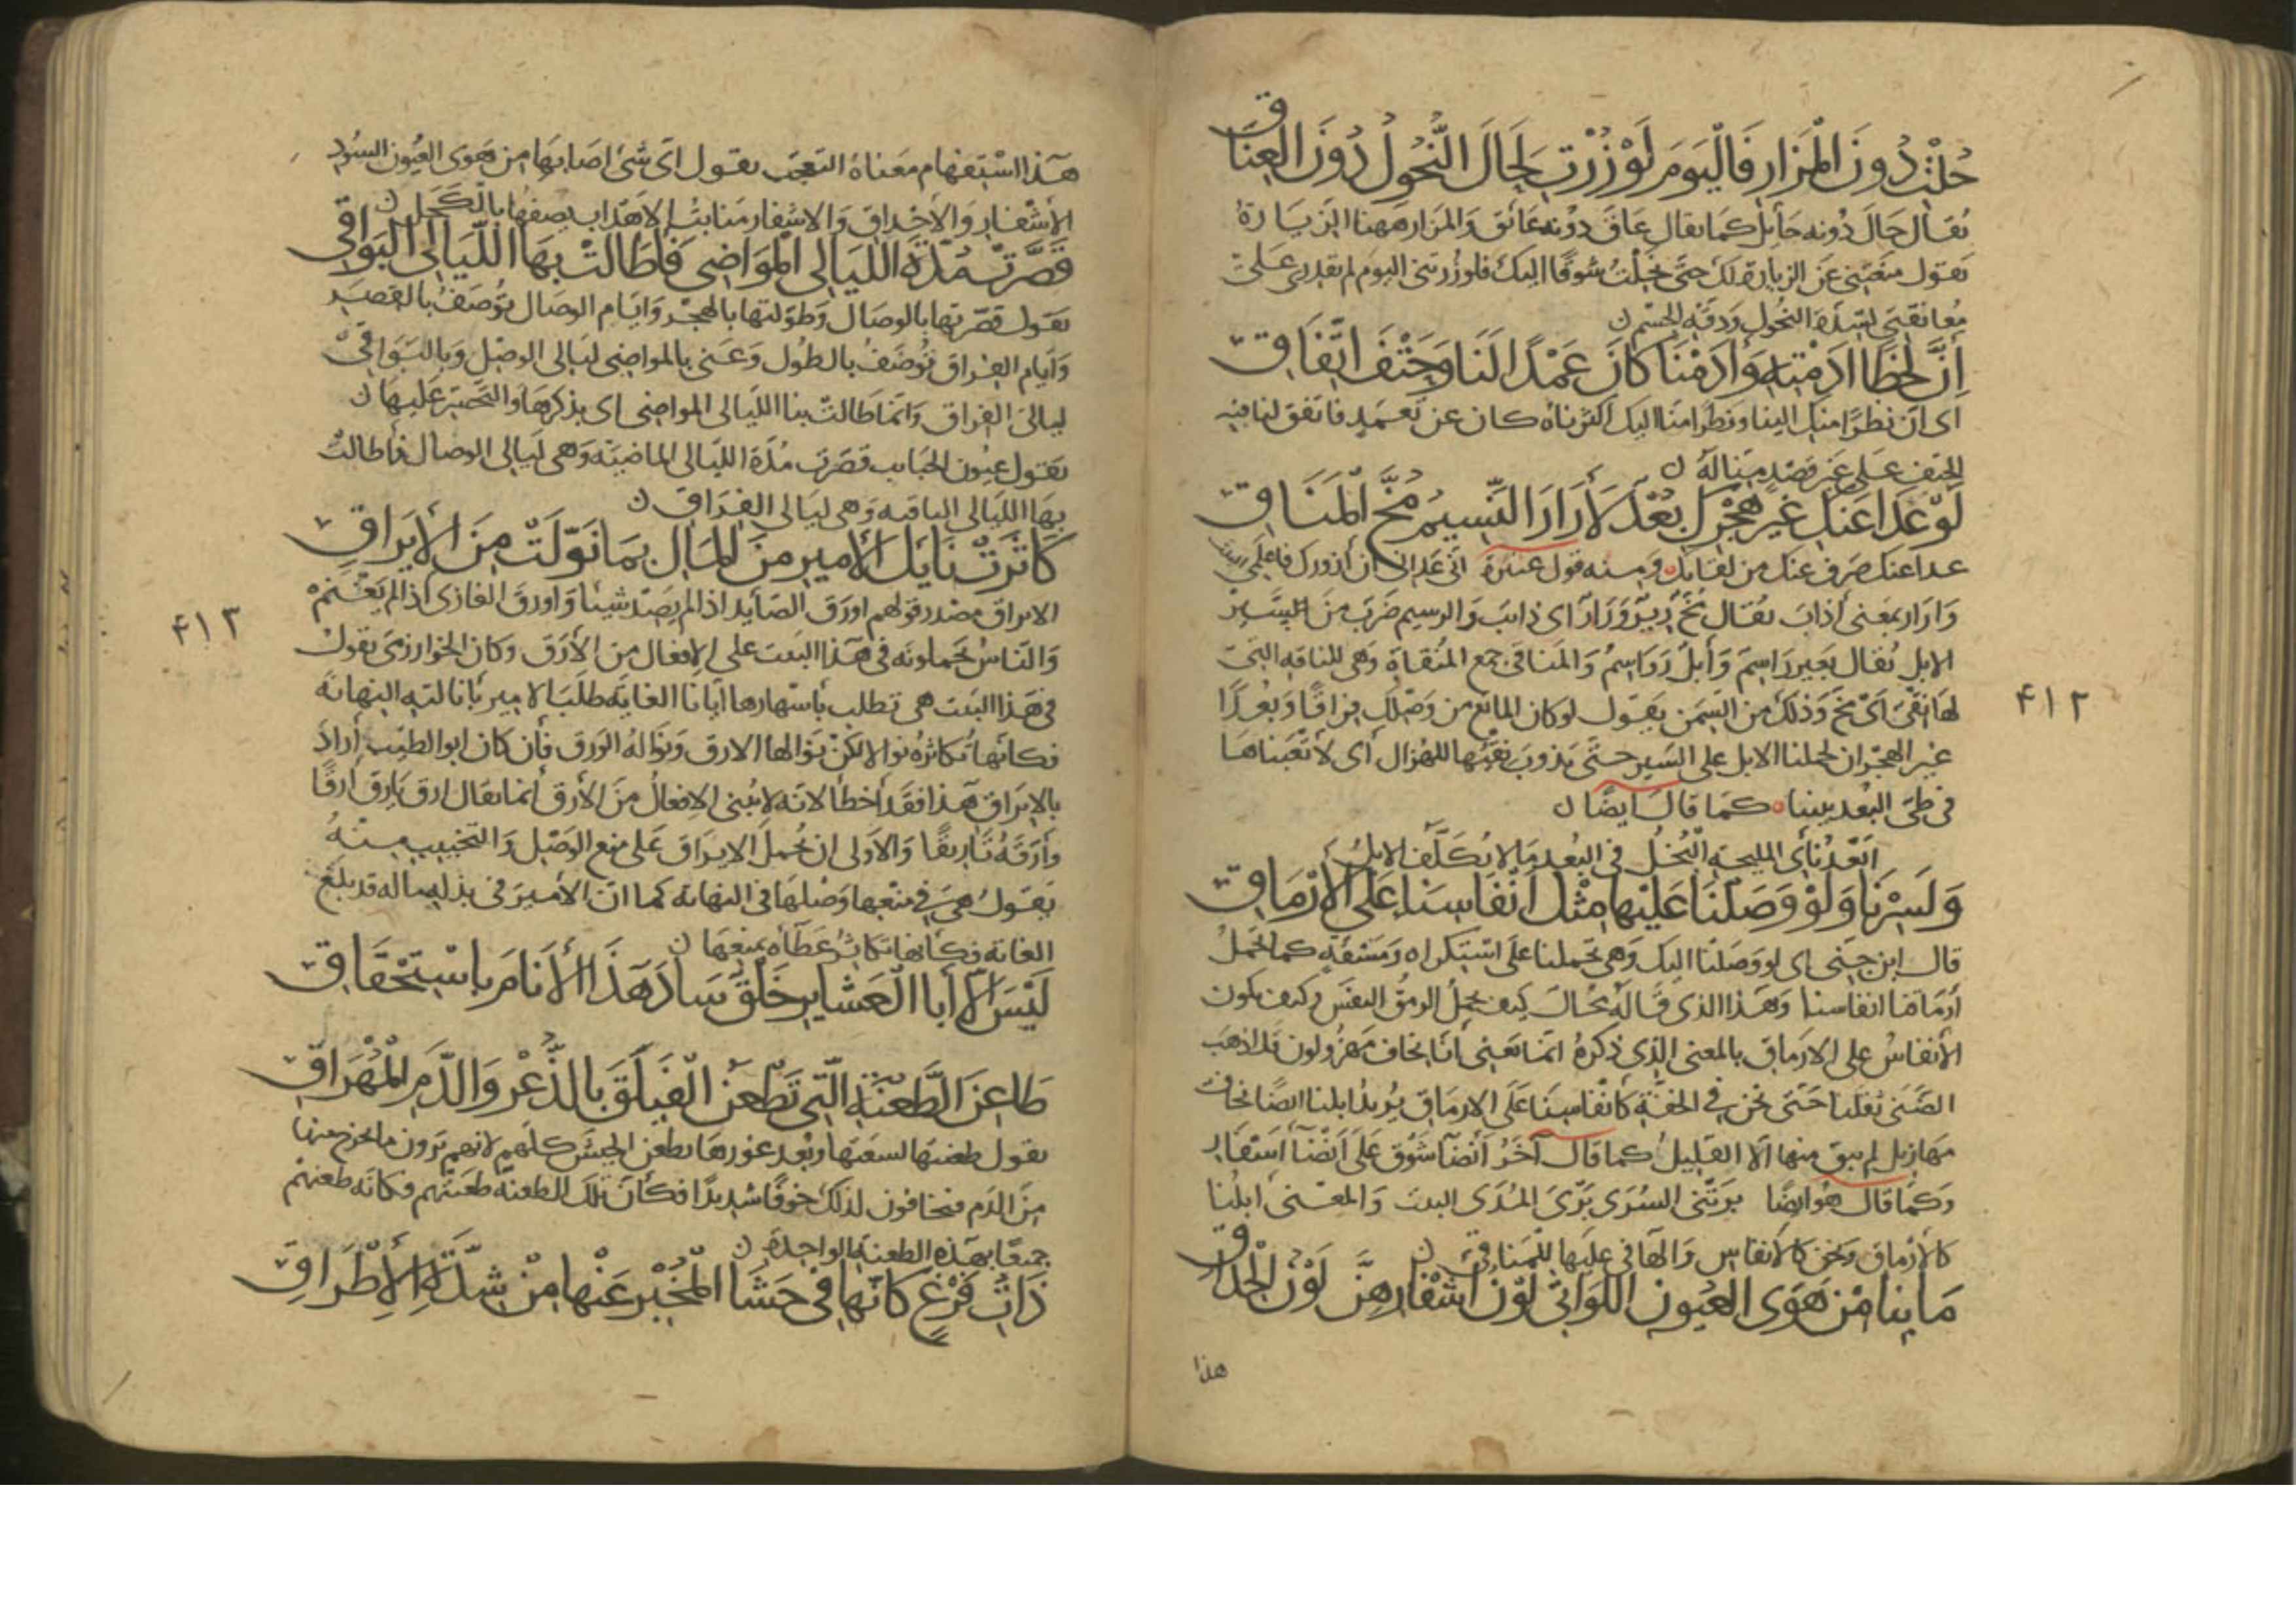 حُلْتِ دُونَ الْمَزَارِ فَالْيَوْمَ لَوْ زُرْتِ لَحَالَ النُّحُولُ دُونَ الْعِنَاقِ
يُقَال حَالَ دُونه حَائِل كمَا يقال عَاق دوُنه عَائق وَالمزار ههنا الزيَارةُ
يَقول منعتِنى عَن الزيارة لك حتى نحلتُ شوقًا اليك فلو زُرتنى اليومَ لم نقدر على
مُعَانقتى لشدة النحُول ودقة الجسم ن
إنَّ لَحْظًا ادَمْتِهِ وَأَدَمْنَا كَانَ عَمْدًا لَنَا وَحَتْفَ اتِّفَاقِ
اى ان نظرًا منكِ الينا ونظرا منا اليك أكثرناه كان عن تعمدٍ فاتفق لنا فيه
الحتف على غير قصدٍ منا له ن
لَوْ عَدَا عَنْكِ غَيْرَ هَجْرِكِ بُعْدٌ لَأَرَارَ الرَّسِيمُ مُخَّ الْمَنَاقِي
عدا عنك صَرف عنك من لقائك ومنه قول عنترة أنى عدانى أن أزورك فاعلمى
وَارَار بمعَنى أذابَ يقُال مُخّ رِيرٌ وَرَارٌ اى ذائب وَالرسيم ضرَب منَ السَّير
الابل يُقال بَعير رَاسِمٌ وَأبلٌ رَوَاسِمُ وَالمَناقى جمع المُنقيَة وَهى للناقة التى
لهَا نِقْىٌ اىْ مخّ وَذلك من السِّمَن يَقول لو كان المانع من وَصْلك فراقًا وَبُعدًا
غير الهجران لحملنا الابل على السَير حتَّى يَذوبَ نقيُها للهزال أى لأتعبناها
فى طىّ البُعد بيننا كمَا قال ايضًا ن
أبْعَدُ نَأْىِ المليحةِ الْبُخُلُ فى البُعدِ مَا لا تُكَلَّفُ الابلُ
وَلَسِرْنَا وَلَوْ وَصَلْنَا عَلَيْهَا مِثْلَ أَنْفَاسِنَا عَلَى الْأَرْمَاقِ
قال ابن جنى اى لو وَصَلنا اليك وَهى تحملنا على استكراه ومشقّةٍ كما تحمل
أرمَاقنا انفاسنا وَهذا الذى قَالهُ محُال كيف يحمل الرمقُ النفسَ وكيف يكون
الأنفاسُ على الارماق بالمعنى الذى ذكرهُ انما يعنى أنّا نحاف مهزُولون قد اذهَب
الضَنى ثِقلنا حتى نحن فى الخفة كأنفاسِنَا على الارماق يُريدُ ابلنا ايضًا نحاف
مهازيل لم يبق منها الا القليل كما قال آخَر أنضَآ شَوْق عَلى أنضَآ أسْفَار
وكمَا قال هُو ايضًا بَرَتْنى السُّرَى بَرْىَ المُدَى البيت وَالمعنى ابلُنا
كالأرماق ونحن كالأنفاس وَالهآ فى عليها للمناقى ن
مَا بِنَا مِنْ هَوَى الْعُيُونِ اللَّوَاتِي لَوْنُ أَشْفَارِهِنَّ لَوْنُ الْحِدَاقِ
هذا
٤١٢
هَذا اسْتفهام معَناهُ التعجّب يقول اىّ شىْ اصَابَها من هَوى العيُون السُود
الأشفارِ وَالأحْداق وَالاشفار منابتُ الاهدَاب يصِفُها بالكحَل ن
قَصَّرَتْ مُدَّةَ اللَّيَالِي الْمَوَاضِي فَأَطَالَتْ بِهَا اللَّيَالِي الْبَوَاقِي
يقول قصّرتها بالوصَال وَطوّلتها بالهجْر وَايّام الوصَال تؤصَفُ بالقصَر
وَأيام الفراق تُوصَفُ بالطُول وَعَنى بالمواضِى ليَالى الوصْل وَبالبَوَاقى
ليالىَ الفراق وَانما طَالتْ بنا الليَالى المواضى اى بذكرهَا وَالتحَسّر عَليهَا ن
يقول عيُون الحَبايب قصّرَت مُدّة الليَالى المَاضيَة وَهى لَيالى الوصَال فأطالتْ
بهَا الليَالى الباقية وَهى ليَالى الفراق ن
كَاثَرَتْ نَائِلَ الْأَمِيرِ مِنَ الْمَالِ بِمَا نَوَّلَتْ مِنَ الْإِيرَاقِ
الايراق مصْدر قولهم اورَق الصَايد اذا لم يَصِدْ شيئًا وَاورقَ الغازى اذا لم يَغنمْ
وَالنَاسُ يحَملونَه فى هَذا البيَت على الإفعال من الأرَق وكان الخوارزمى يقول
فى هذا البيَت هى تطلب بأسْهارها ايّانا الغايَة طلَبَ الامير بأنالته النهاية
فكأنها تُكاثرهُ نوالا لكنّ نوَالها الارق وَنوالهُ الورَق فأن كان ابو الطيّب أرَادَ
بالإيراق هَذا فقد أخطأ لانّه لا يُبنى الإفعالُ منَ الأرَق انما يقال ارِق يَارَق أرقًا
وأرّقَهُ تاريقًا وَالأولى ان يُحملَ الايراق على منع الوَصْل وَالتخييب منهُ
يقول هىَ فى منْعها وَصْلهَا فى النهاية كما انّ الأميرَ فى بذله ماله قد بلغ
الغاية فكأنها تكاثرُ عَطَآه بمنعهَا ن
لَيْسَ إِلَّا أَبَا الْعَشَايِرِ خَلْقٌ سَادَ هَذَا الْأَنَامَ بِاسْتِحْقَاقِ
طَاعِنُ الطَّعْنَةِ الَّتِي تَطْعُنُ الْفَيْلَقَ بِالذُّعْرِ وَالدَّمِ الْمُهْرَاقِ
يقول طعنتهَا لسعتها وبُعد غورهَا تطعن الجيشَ كلهم لانهم يَرون ما يخرج منها
منَ الدم فيخافون لذلك خوفًا شديدًا فكأنّ تلك الطعنة طعَنتْهم وكانّه طعنهُم
جميعًا بهذه الطعنة الواحِدة ن
ذَاتُ فَرْغٍ كَأَنَّهَا فِي حَشَا الْمُخْبَرِ عَنْهَا مِنْ شِدَّةِ الْإِطْرَاقِ
٤١٣